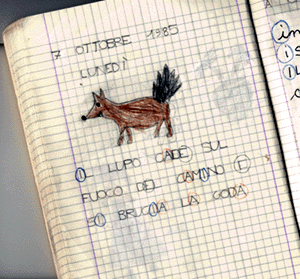 7 OTTOBRE 1985
LUNEDÌ
IL LUPO CADE SUL
FUOCO DEL CAMINO E
SI BRUCIA LA CODA
in